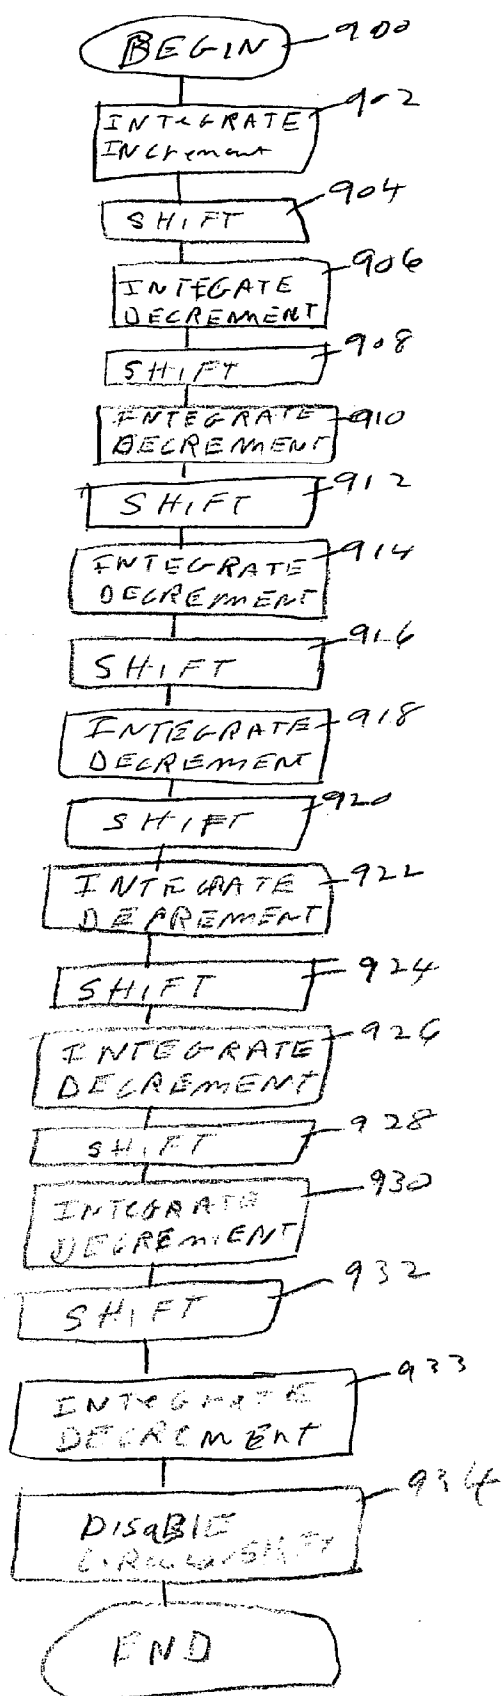 BEGIN 900
902
INTEGRATE
INCrement
904
SHIFT
906
INTEGATE
DECREMENT
908
SHIFT
INTEGRATE 910
DECREMENT
912
SHIFT
914
INTEGRATE
DECREMENT
916
SHIFT
INTEGRATE 918
DECREMENT
920
SHIFT
INTEGRATE 922
DECREMENT
SHIFT 924
926
INTEGRATE
DECREMENT
928
SHIFT
930
INTEGRATE
DECREMENT
932
SHIFT
933
INTEGRATE
DECREMENT
934
DISaBlE
END